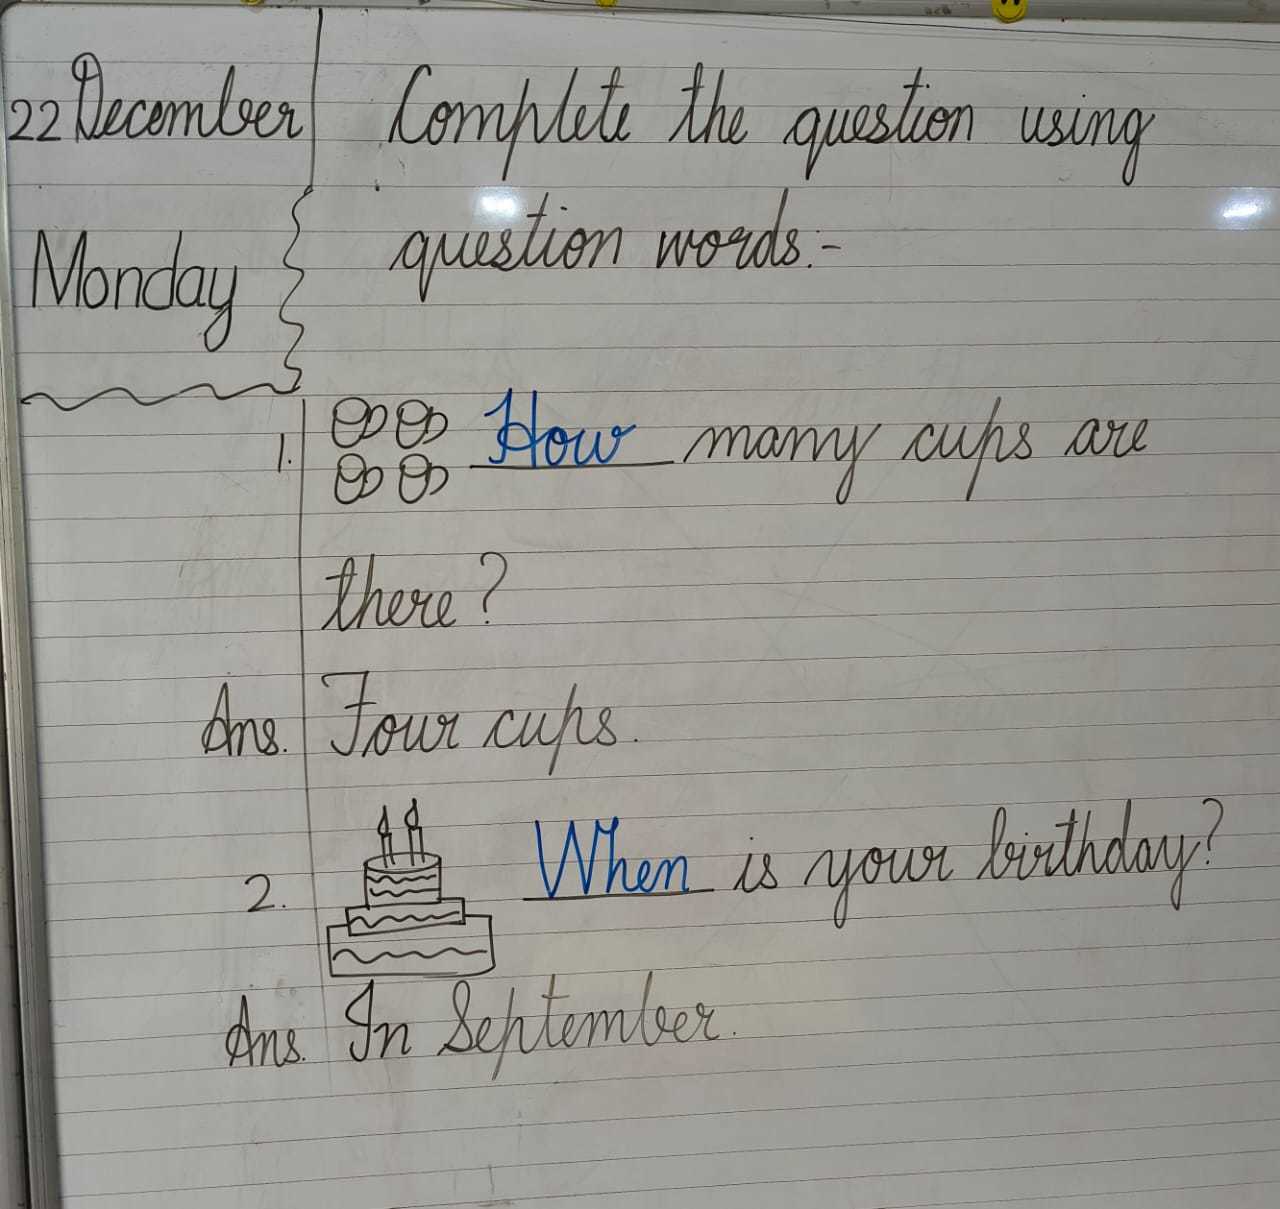 22 December
Monday
Complete the question using
question words:-
1. How many cups are
there?
Ans. Four cups.
2. When is your birthday?
Ans. In September.